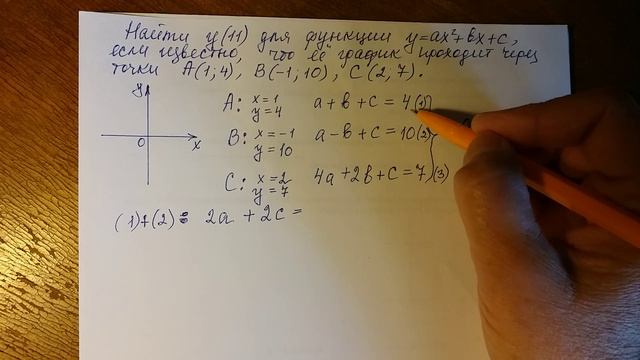 Найти y(11) для функции y=ax²+bx+c,
если известно, что её график проходит через
точки A(1;4), B(-1;10), C(2;7).
y
0
x
A: x=1
y=4
a+b+c=4(1)
B: x=-1
y=10
a-b+c=10(2)
C: x=2
y=7
4a+2b+c=7(3)
(1)+(2): 2a+2c=